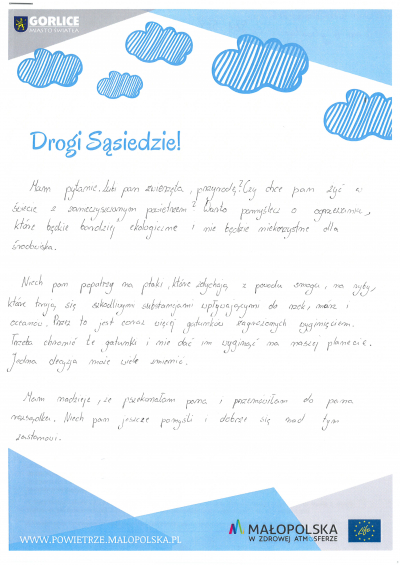 GORLICE
MIASTO ŚWIATŁA
Drogi Sąsiedzie!
Mam pytanie. Lubi pan zwierzęta, przyrodę? Czy chce pan żyć w
świecie z zanieczyszczonym powietrzem? Warto pomyśleć o ogrzewaniu,
które będzie bardziej ekologiczne i nie będzie niekorzystne dla
środowiska.
Niech pan popatrzy na ptaki, które zdychają z powodu smogu, na ryby,
które trują się szkodliwymi substancjami wpływającymi do rzek, mórz i
oceanów. Przez to jest coraz więcej gatunków zagrożonych wyginięciem.
Trzeba chronić te gatunki i nie dać im wyginąć na naszej planecie.
Jedna decyzja może wiele zmienić.
Mam nadzieję, że przekonałam pana i przemówiłam do pana
rozsądku. Niech pan jeszcze pomyśli i dobrze się nad tym
zastanowi.
WWW.POWIETRZE.MALOPOLSKA.PL
MAŁOPOLSKA
W ZDROWEJ ATMOSFERZE
Life